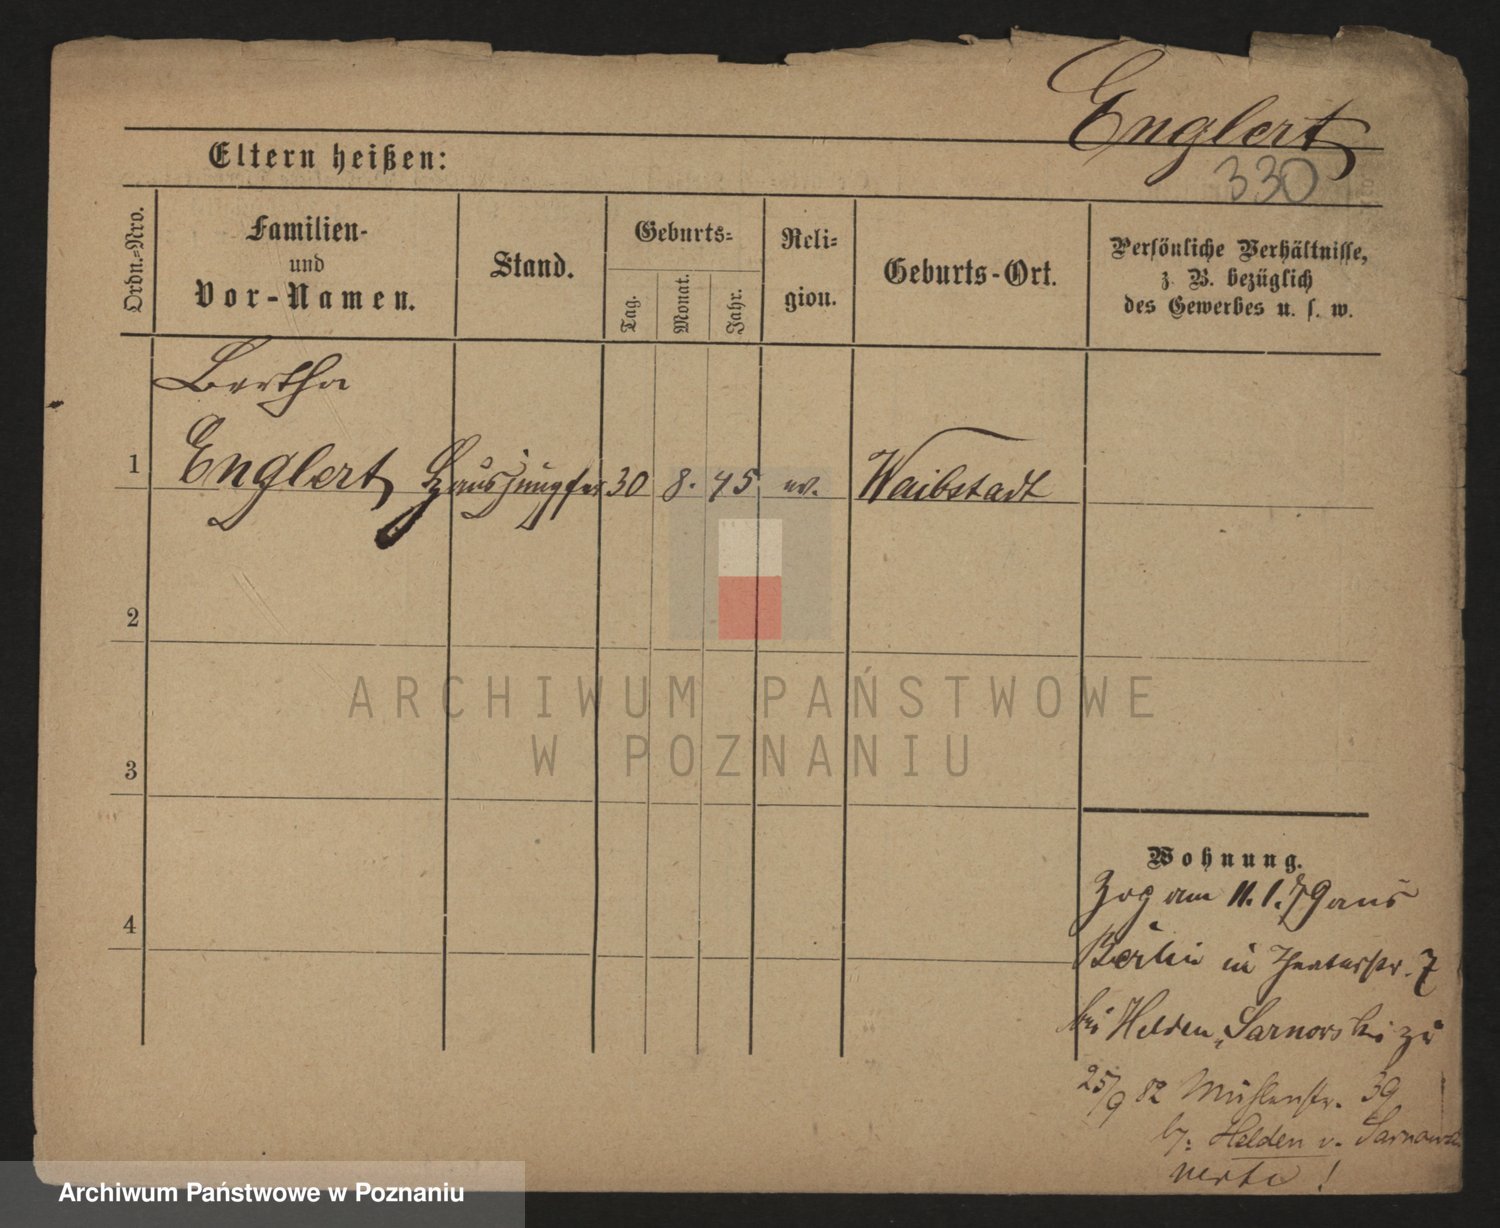 Englert
330
Eltern heißen:
Ordn.-Nro.
Familien-
und
Vor-Namen.
Stand.
Geburts-
Tag.
Monat.
Jahr.
Reli-
gion.
Geburts-Ort.
Persönliche Verhältnisse,
z. B. bezüglich
des Gewerbes u. s. w.
Bertha
1 Englert Hausjungfer 30 8. 45 ev. Waibstadt
2
3
4
Wohnung.
Zog am 11.1.79 aus
Berlin in Theaterstr. 7
bei Helden Sarnowski zu
25/9 82 Mühlenstr. 39
b. Helden v. Sarnowski
verte!
ARCHIWUM PAŃSTWOWE
W POZNANIU
Archiwum Państwowe w Poznaniu